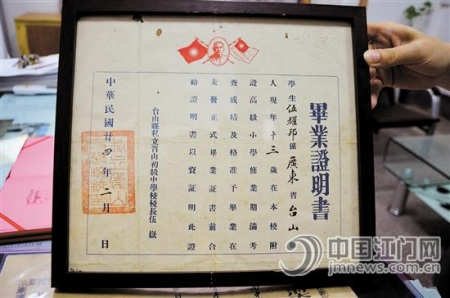 畢業證明書
學生伍耀邦係廣東省台山
人現年十三歲在本校附
設高級小學修業期滿考
查成績及格准予畢業在
未發正式畢業証書前合
給證明書以資証明此證
台山縣私立
初級中學校校長伍
中華民國廿四年二月日
中国江门网
jmnews.com.cn